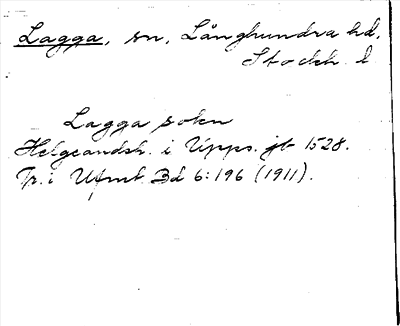 Lagga, sn, Långhundra hd,
Stockh. l
Lagga sokn
Helgeandsh. i Upps. jb 1528.
Tr. i Ufmt Bd 6:196 (1911).